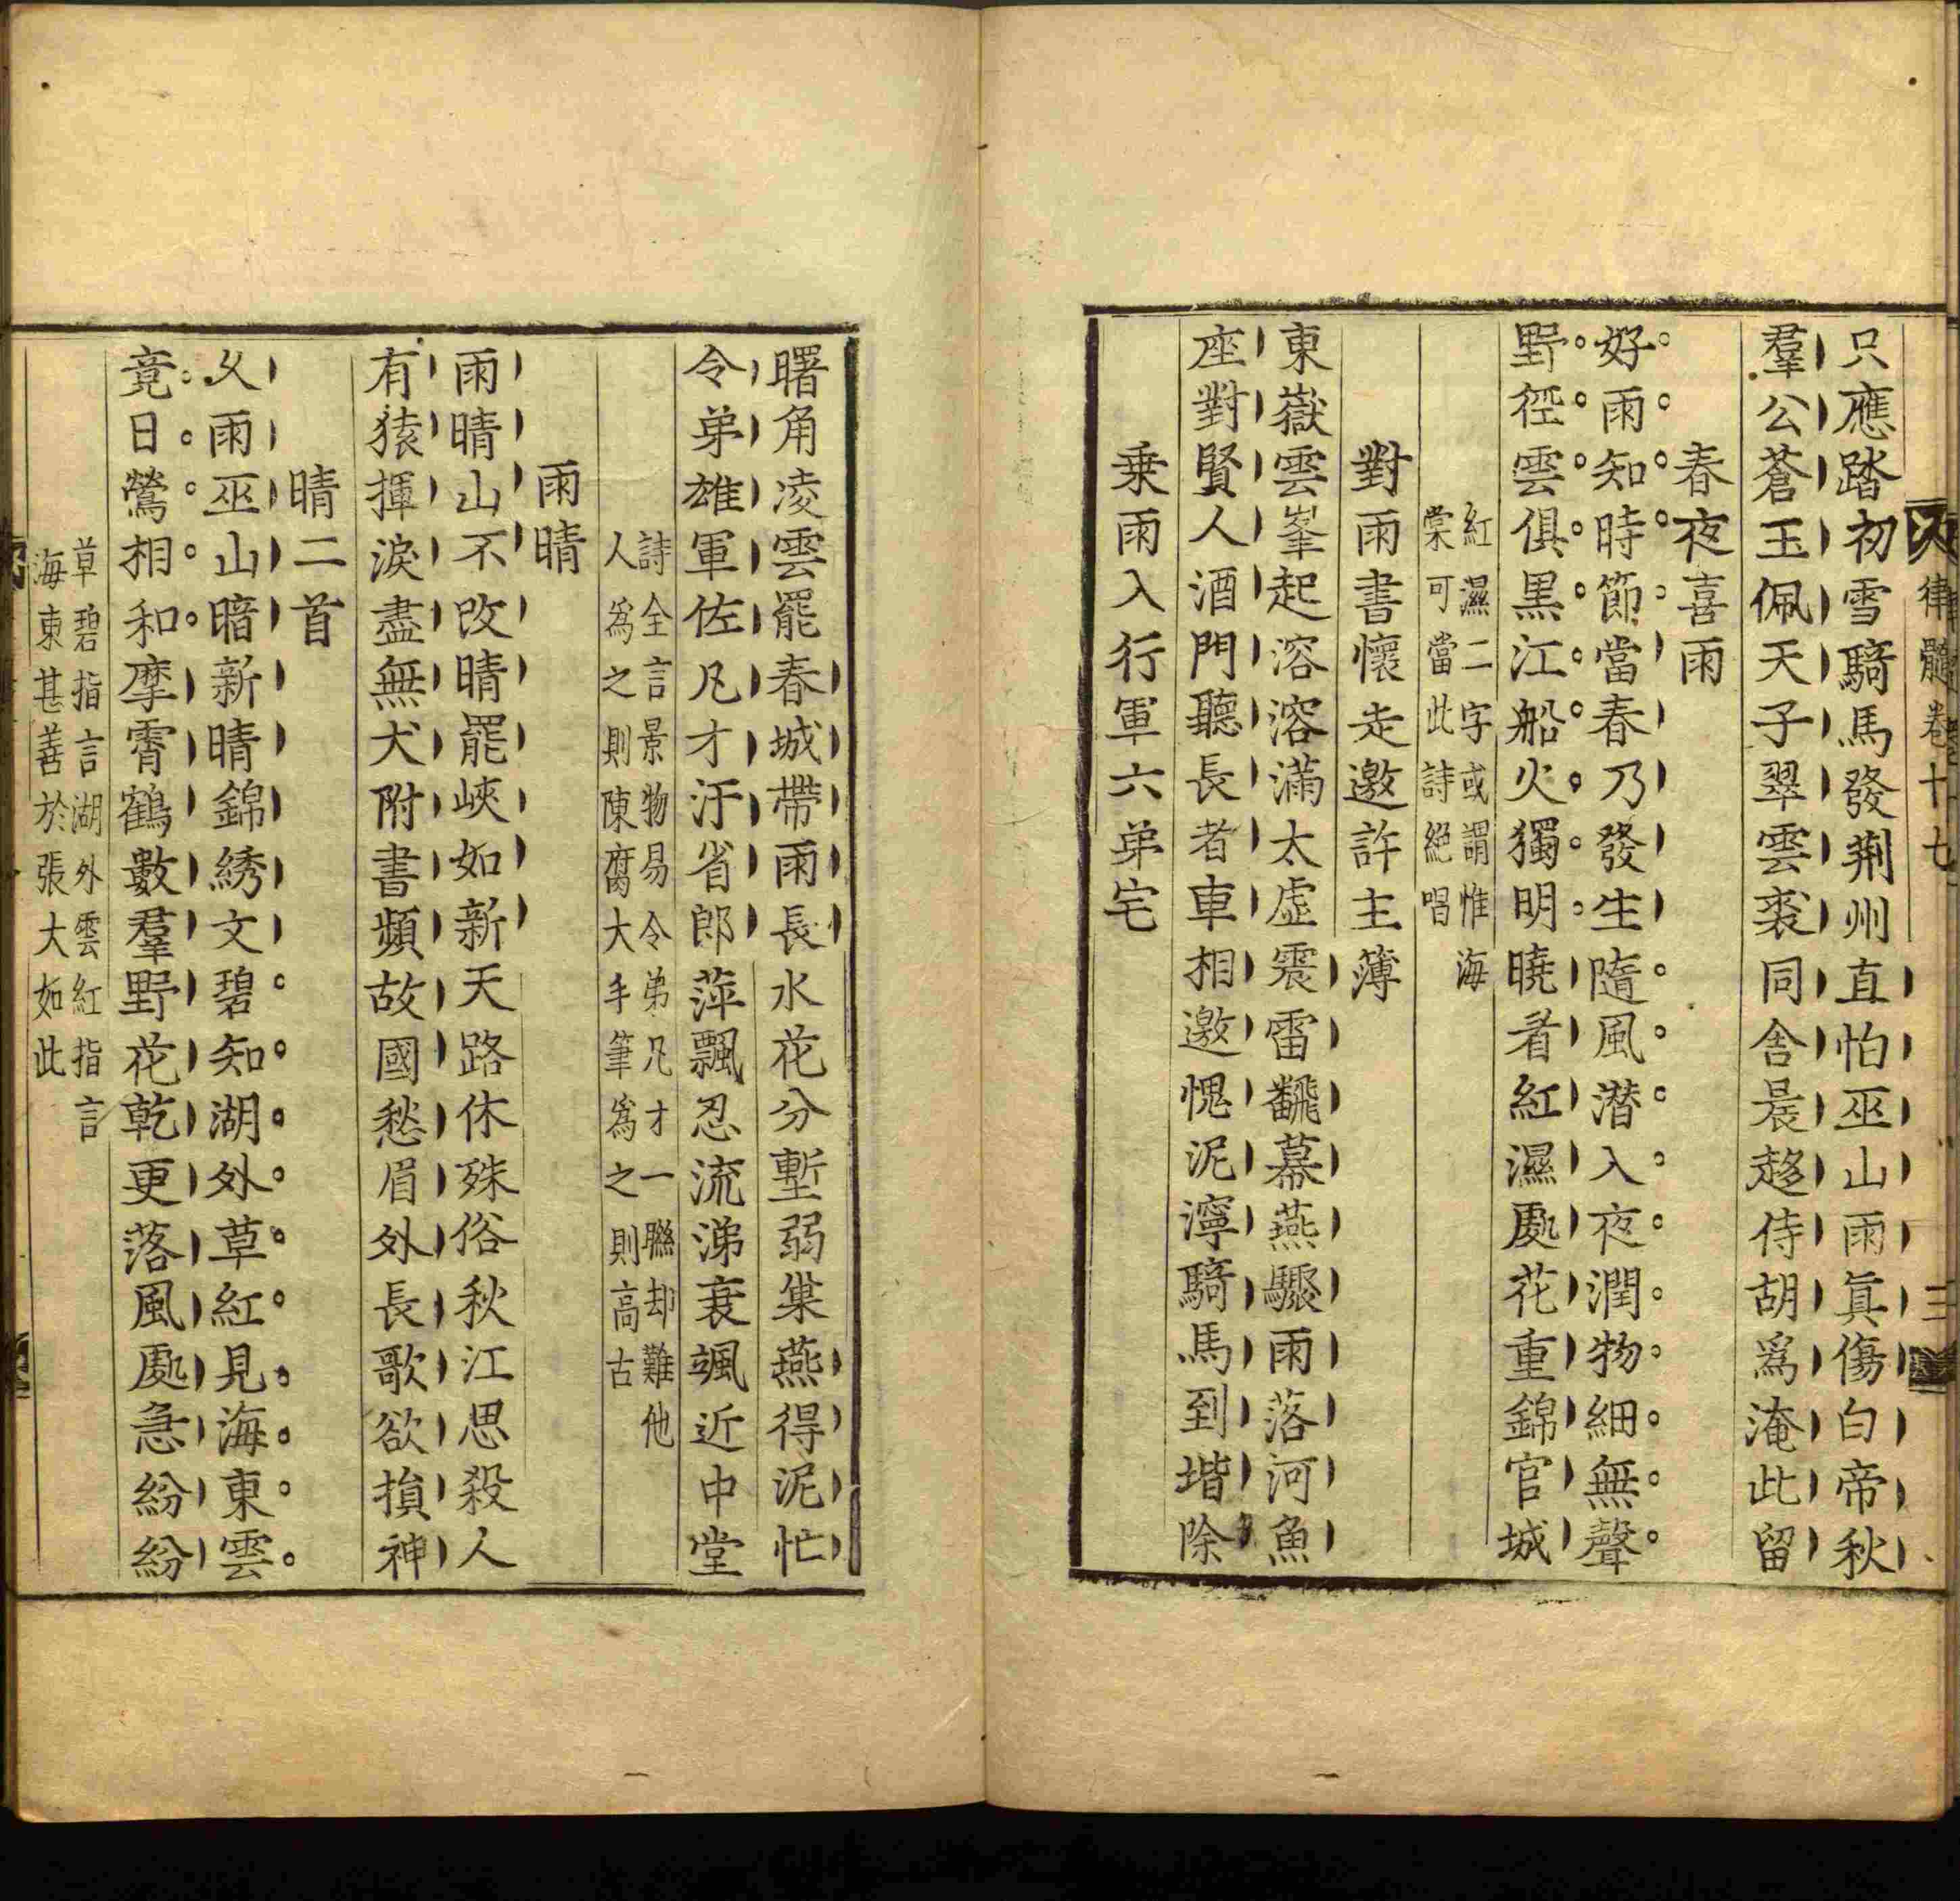 律髓卷十七
三
只應踏初雪騎馬發荆州直怕巫山雨眞傷白帝秋
羣公蒼玉佩天子翠雲裘同舎晨趍侍胡爲淹此留
春夜喜雨
好雨知時節當春乃發生隨風潜入夜潤物細無聲
野徑雲俱黒江船火獨明曉看紅濕處花重錦官城
紅濕二字或謂惟海
棠可當此詩絕唱
對雨書懷走邀許主薄
東嶽雲峯起溶溶滿太虛震雷飜幕燕驟雨落河魚
座對賢人酒門聽長者車相邀愧泥濘騎馬到堦除
乗雨入行軍六弟宅
曙角凌雲罷春城帶雨長水花分塹弱巢燕得泥忙
令弟雄軍佐凡才汙省郎萍飄忍流涕衰颯近中堂
詩全言景物易令弟凡才一聯却難他
人爲之則陳腐大手筆爲之則高古
雨晴
雨晴山不改晴罷峽如新天路休殊俗秋江思殺人
有猿揮淚盡無犬附書頻故國愁眉外長歌欲損神
晴二首
乆雨巫山暗新晴錦綉文碧知湖外草紅見海東雲
竟日鶯相和摩霄鶴數羣野花乾更落風處急紛紛
草碧指言湖外雲紅指言
海東甚善於張大如此